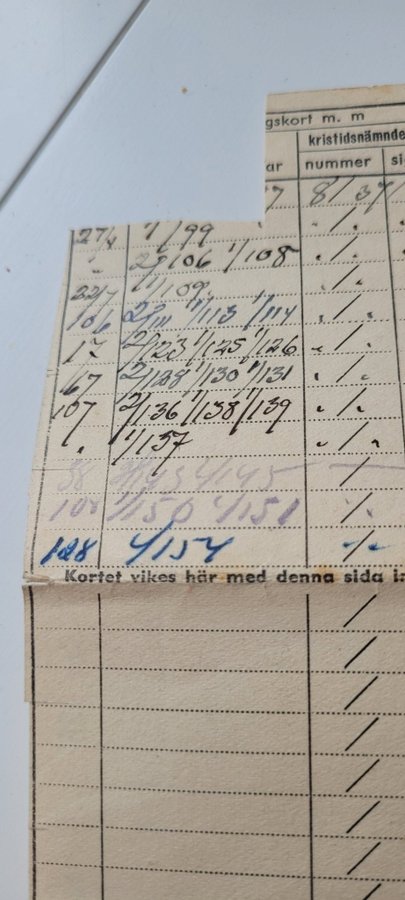 gskort m. m
kristidsnämnde
ar nummer si
7 8 / 37/
27/4 1/99 " / "
" 2/106 1/108 " / "
22/7 1/109 " / "
2/111 1/113 1/114 " / "
17 2/123 1/125 1/126 " / "
67 2/128 1/130 1/131 " / "
107 2/136 1/138 1/139 " / "
" 1/137 " / "
4/145 /
108 1/150 4/151 /
128 4/154 /
Kortet vikes här med denna sida i
/
/
/
/
/
/
/
/